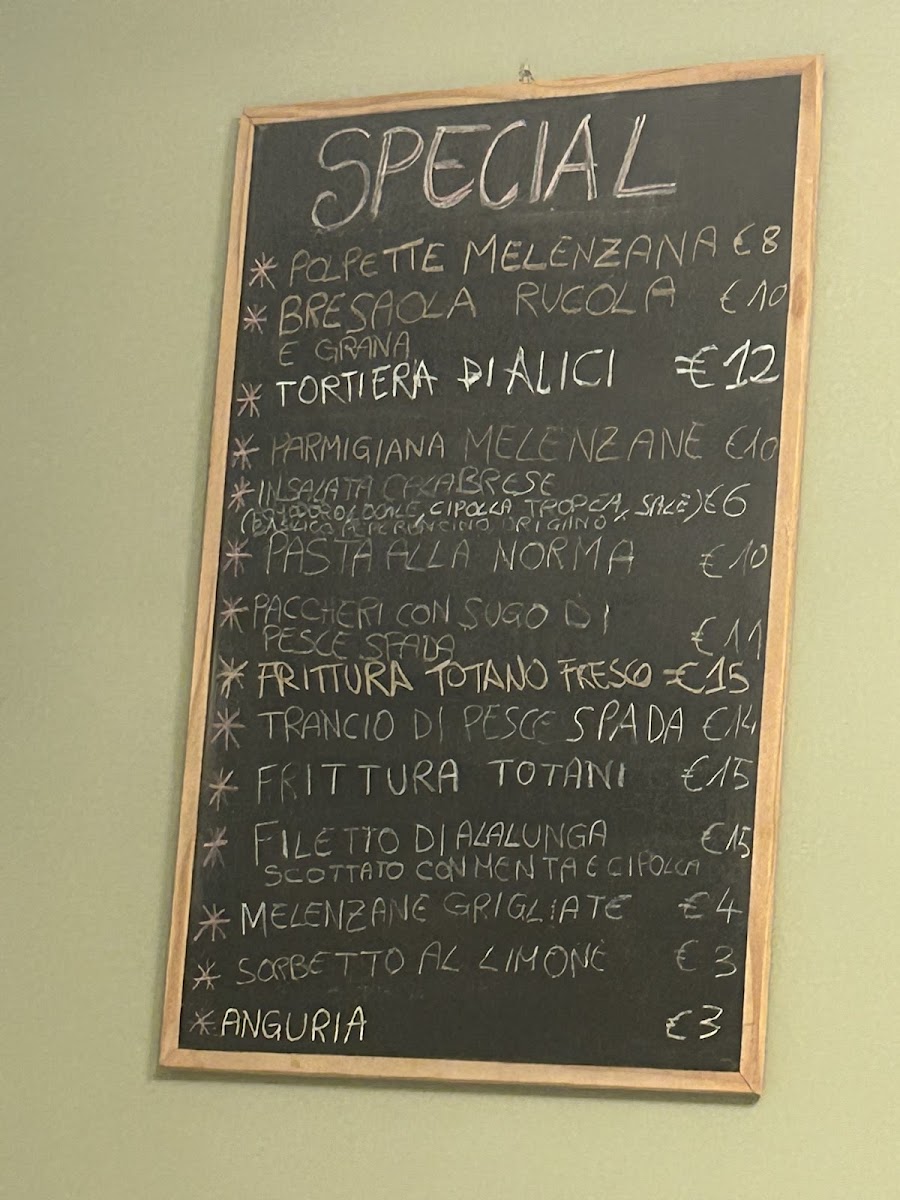 SPECIAL
* POLPETTE MELENZANA €8
* BRESAOLA RUCOLA €10
E GRANA
* TORTIERA DI ALICI €12
* PARMIGIANA MELENZANE €10
* INSALATA CALABRESE
(POMODORO LOCALE, CIPOLLA TROPEA, SALE) €6
BASILICO PEPERONCINO ORIGANO
* PASTA ALLA NORMA €10
* PACCHERI CON SUGO DI
PESCE SPADA €11
* FRITTURA TOTANO FRESCO €15
* TRANCIO DI PESCE SPADA €14
* FRITTURA TOTANI €15
* FILETTO DI ALALUNGA €15
SCOTTATO CON MENTA E CIPOLLA
* MELENZANE GRIGLIATE €4
* SORBETTO AL LIMONE €3
* ANGURIA €3